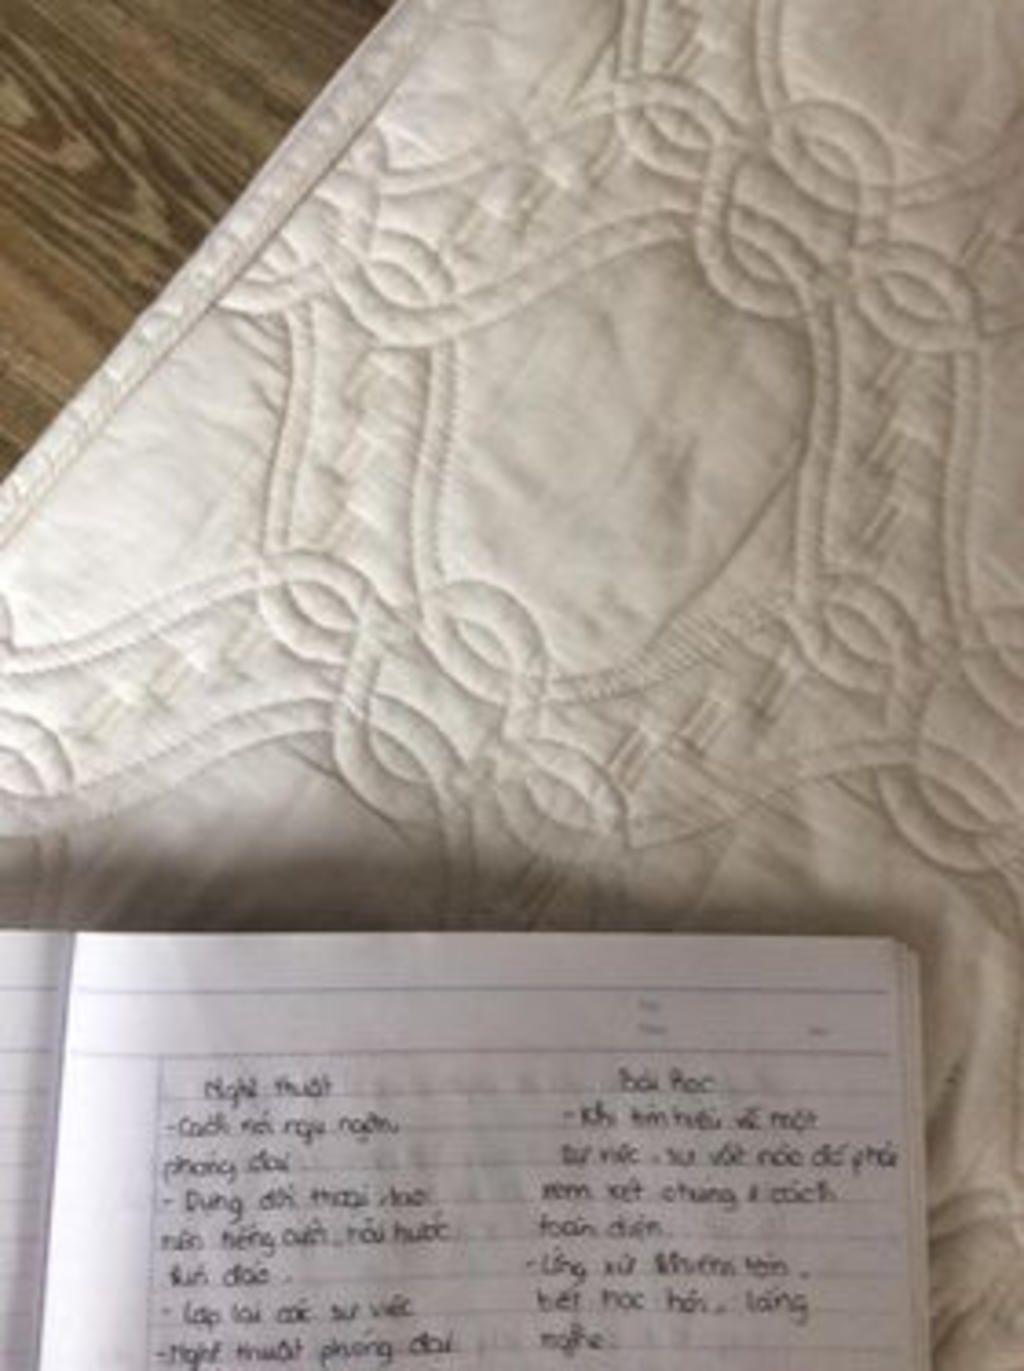 Nghệ thuật
- Cách nói ngụ ngôn,
phóng đại
- Dùng đối thoại, tạo
nên tiếng cười, hài hước
kín đáo.
- Lặp lại các sự việc
- Nghệ thuật phóng đại
Bài học
- Khi tìm hiểu về một
sự việc, sự vật nào đó phải
xem xét chúng 1 cách
toàn diện.
- Ứng xử khiêm tốn,
biết học hỏi, lắng
nghe.